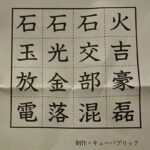 石石石火
玉光交吉
放金部豪
電落混磊
制作・キューパブリック